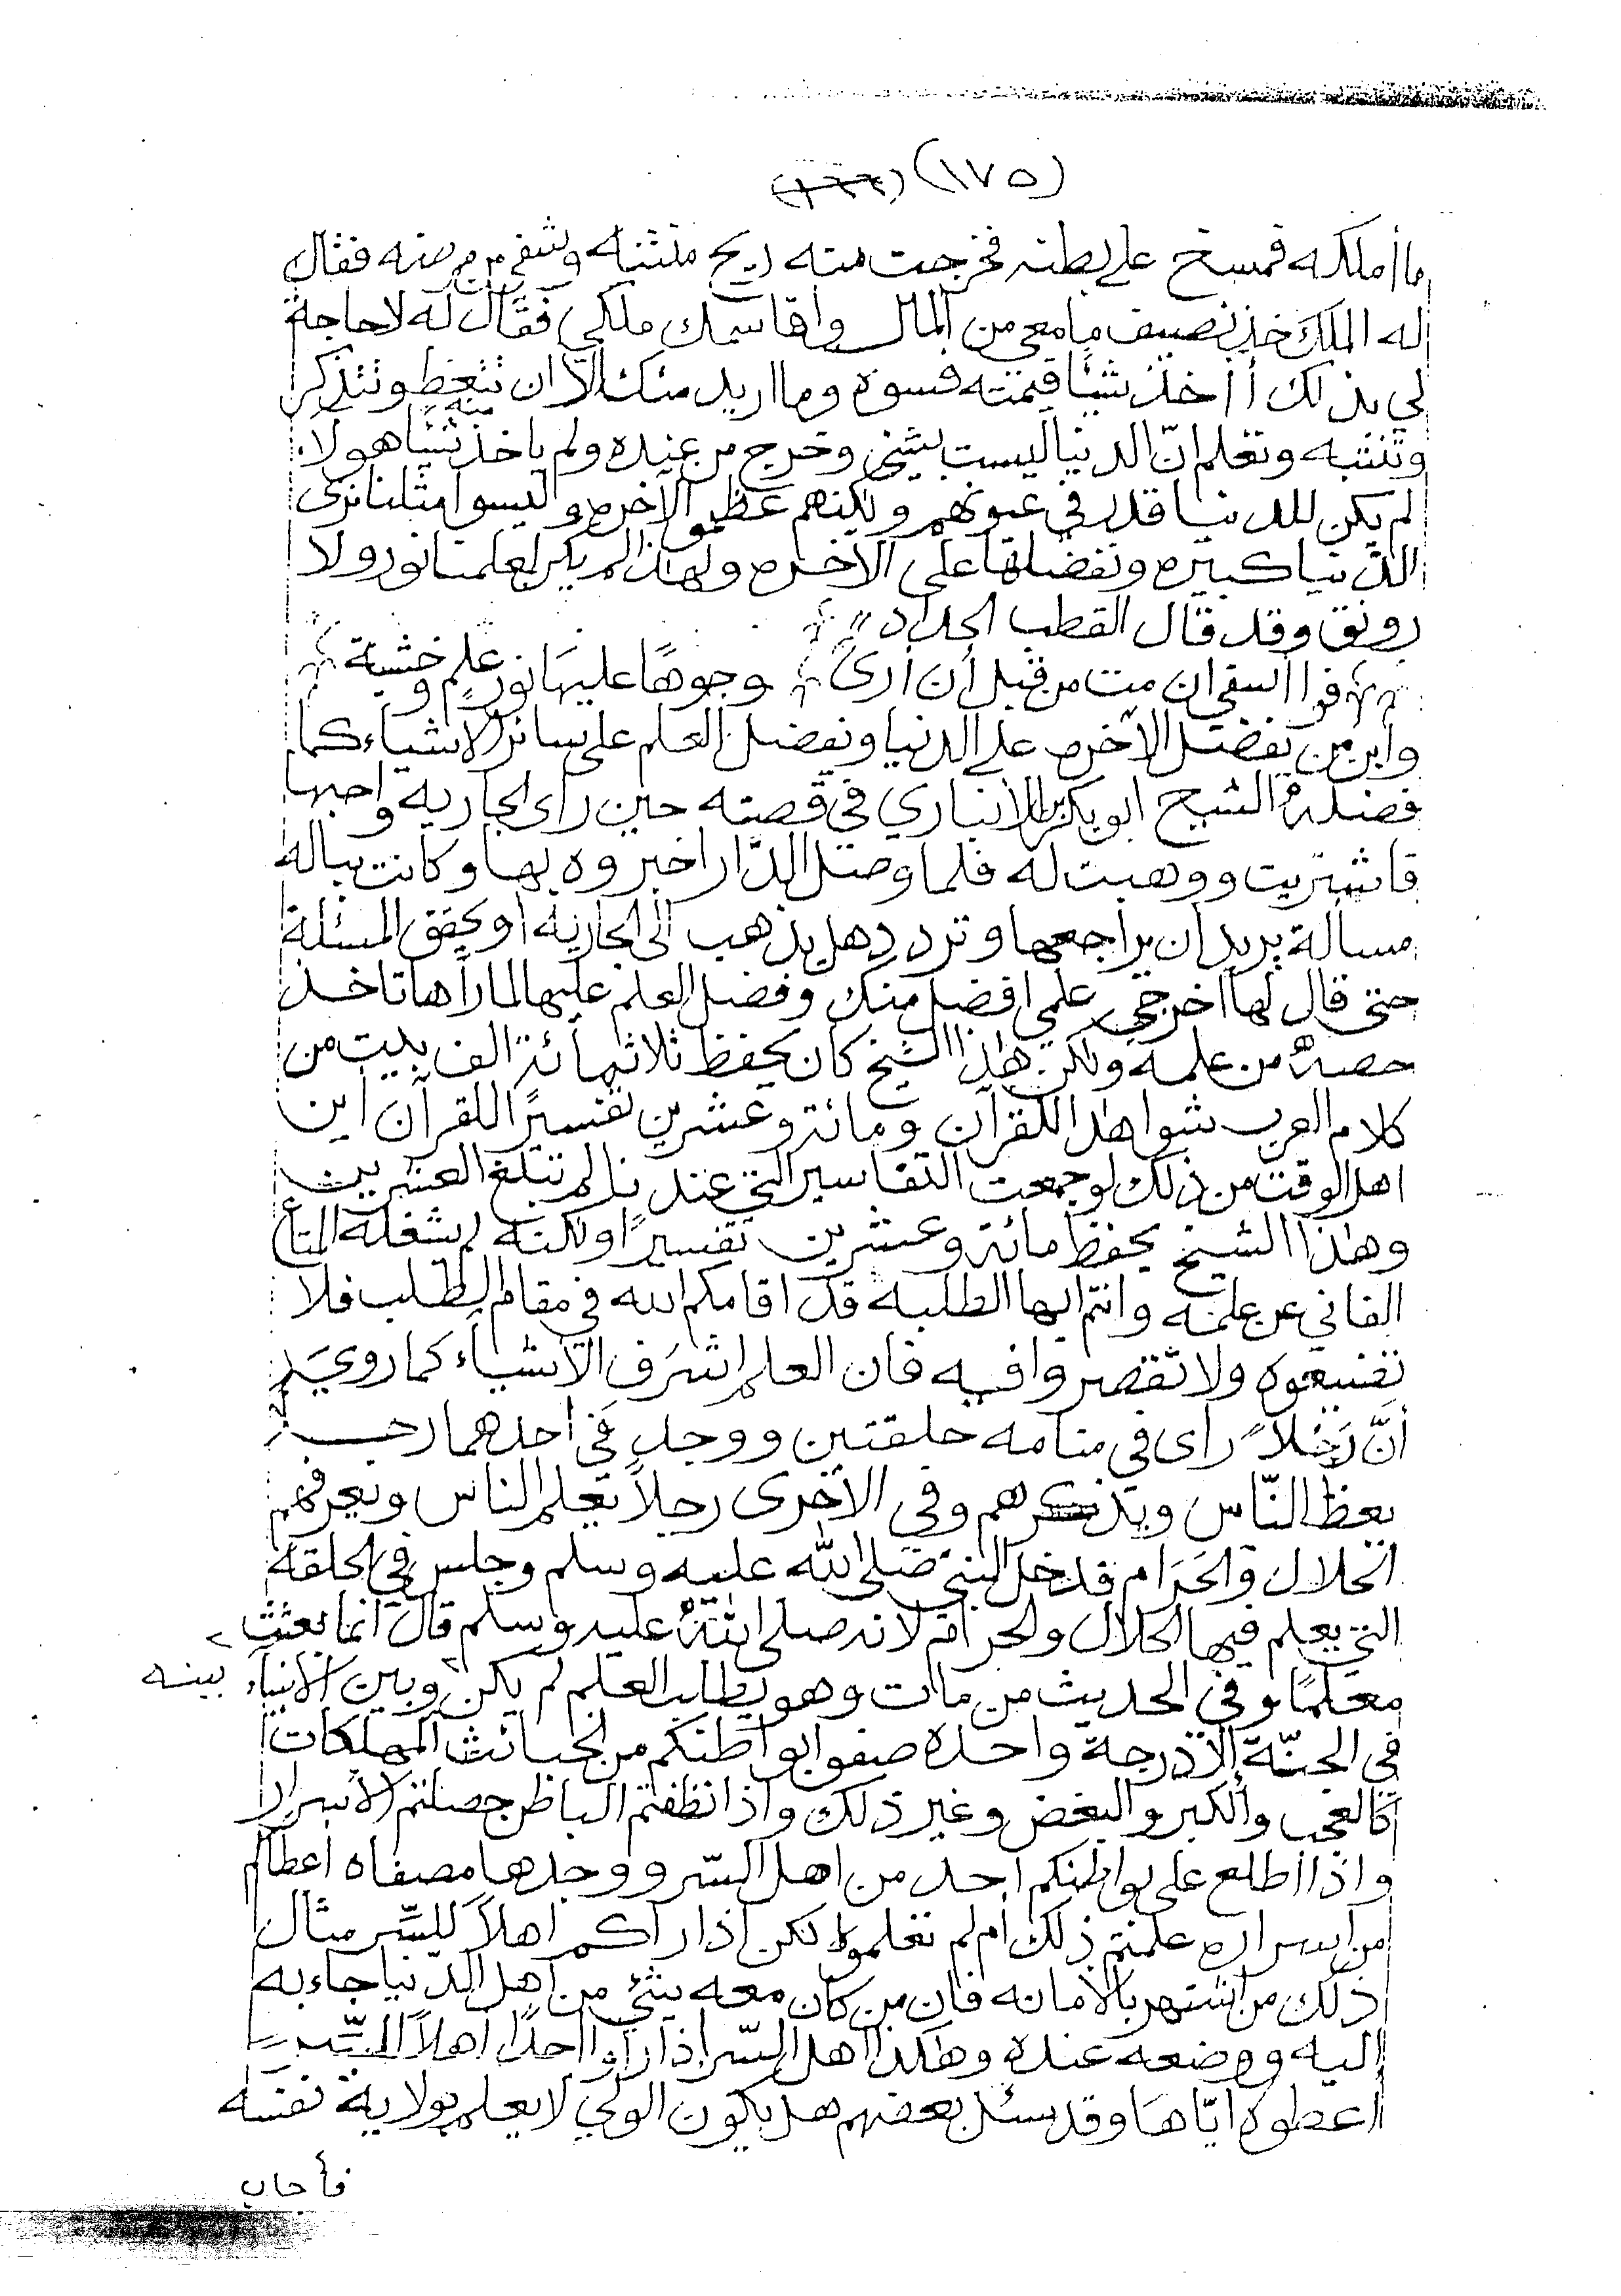 (١٧٥) (١٦٦)
ما أملكه فمسح على بطنه فخرجت منه ريح منتنه وشفي من مرضه فقال
له الملك خذ نصيف ما معي من المال واقاسمك ملكي فقال له لا حاجة
لي بذلك أآخذ شيئا قيمته فسوه وما اريد منك الا ان تتعظ وتتذكر
وتنتبه وتعلم انّ الدنيا ليست بشئ وخرج من عنده ولم ياخذ منه شيئًا هولاء
لم يكن للدنيا قدر في عيونهم ولكنهم عظموا الآخره وليسوا مثلنا نرى
الدنيا كبيره ونفضلها على الآخره ولهذا لم يكن لعلمنا نور ولا
رونق وقد قال القطب الحداد
فوا أسفي ان مت من قبل أن أرى وجوهًا عليها نور علمٍ وخشية
وأين من يفضل الآخره على الدنيا ويفضل العلم على سائر الاشياء كما
فضله الشيخ ابوبكر الأنباري في قصته حين راى الجاريه واحبها
فاشتريت ووهبت له فلما وصل الدّار اخبروه بها وكانت بباله
مسألة يريد ان يراجعها وتردد هل يذهب الى الجاريه او يحقق المسئلة
حتى قال لها أخرجي علمي افضل منك وفضل العلم عليها لما رآها تاخذ
حصهً من علمه ولكن هذا الشيخ كان يحفظ ثلاثمائة الف بيت من
كلام العرب شواهد اللقرآن ومائة وعشرين تفسيرًا للقرآن اين
اهل الوقت من ذلك لو جمعت التفاسير التي عندنا لم تبلغ العشرين
وهذا الشيخ يحفظ مائة وعشرين تفسيرًا ولكنه لم يشغله المتاع
الفاني عن علمه وانتم ايها الطلبه قد اقامكم الله في مقام الطلب فلا
تضيعوه ولا تقصروا فيه فان العلم اشرف الأشياء كما روي
أنّ رَجُلاً راى في منامه حلقتين ووجد في احدهما رجلا
يعظ النّاس ويذكرهم وفي الآخرى رجلاً يعلم الناس ويعرفهم
الحلال والحَرَام فدخل النبي صلى الله عليه وسلم وجلس في الحلقه
التي يعلم فيها الحلال ولحرام لانه صلى اللهُ عليه وسلم قال انما بعثت
معلمًا وفي الحديث من مات وهو يطلب العلم لم يكن بينه وبين الانبياء
في الجنّة إلا درجة واحده صفوا بواطنكم من الخبائث المهلكات
كالعجب والكبر والبغض وغير ذلك واذا نظفتم الباطن حصلتم الأسرار
واذا أطلع على بواطنكم احد من اهل السّر ووجدها مصفاه اعطاكم
من أسراره علمتم ذلك أم لم تعلموا لكن اذا رآكم اهلاً للسِّر مثال
ذلك من اشتهر بالأمانه فان من كان معه شئ من أهل الدنيا جاء به
إليه ووضعه عنده وهكذا أهل السّر إذا رأوا احدًا اهلاً للسِّر
أعطوه ايّاها وقد سئل بعضهم هل يكون الولي لا يعلم بولاية نفسه
فأجاب